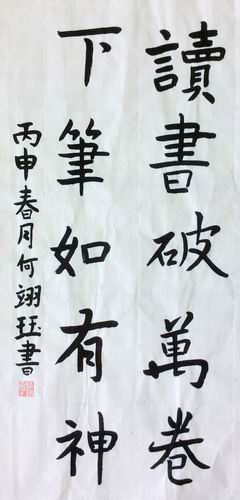 讀書破萬卷
下筆如有神
丙申春月何翊珏書